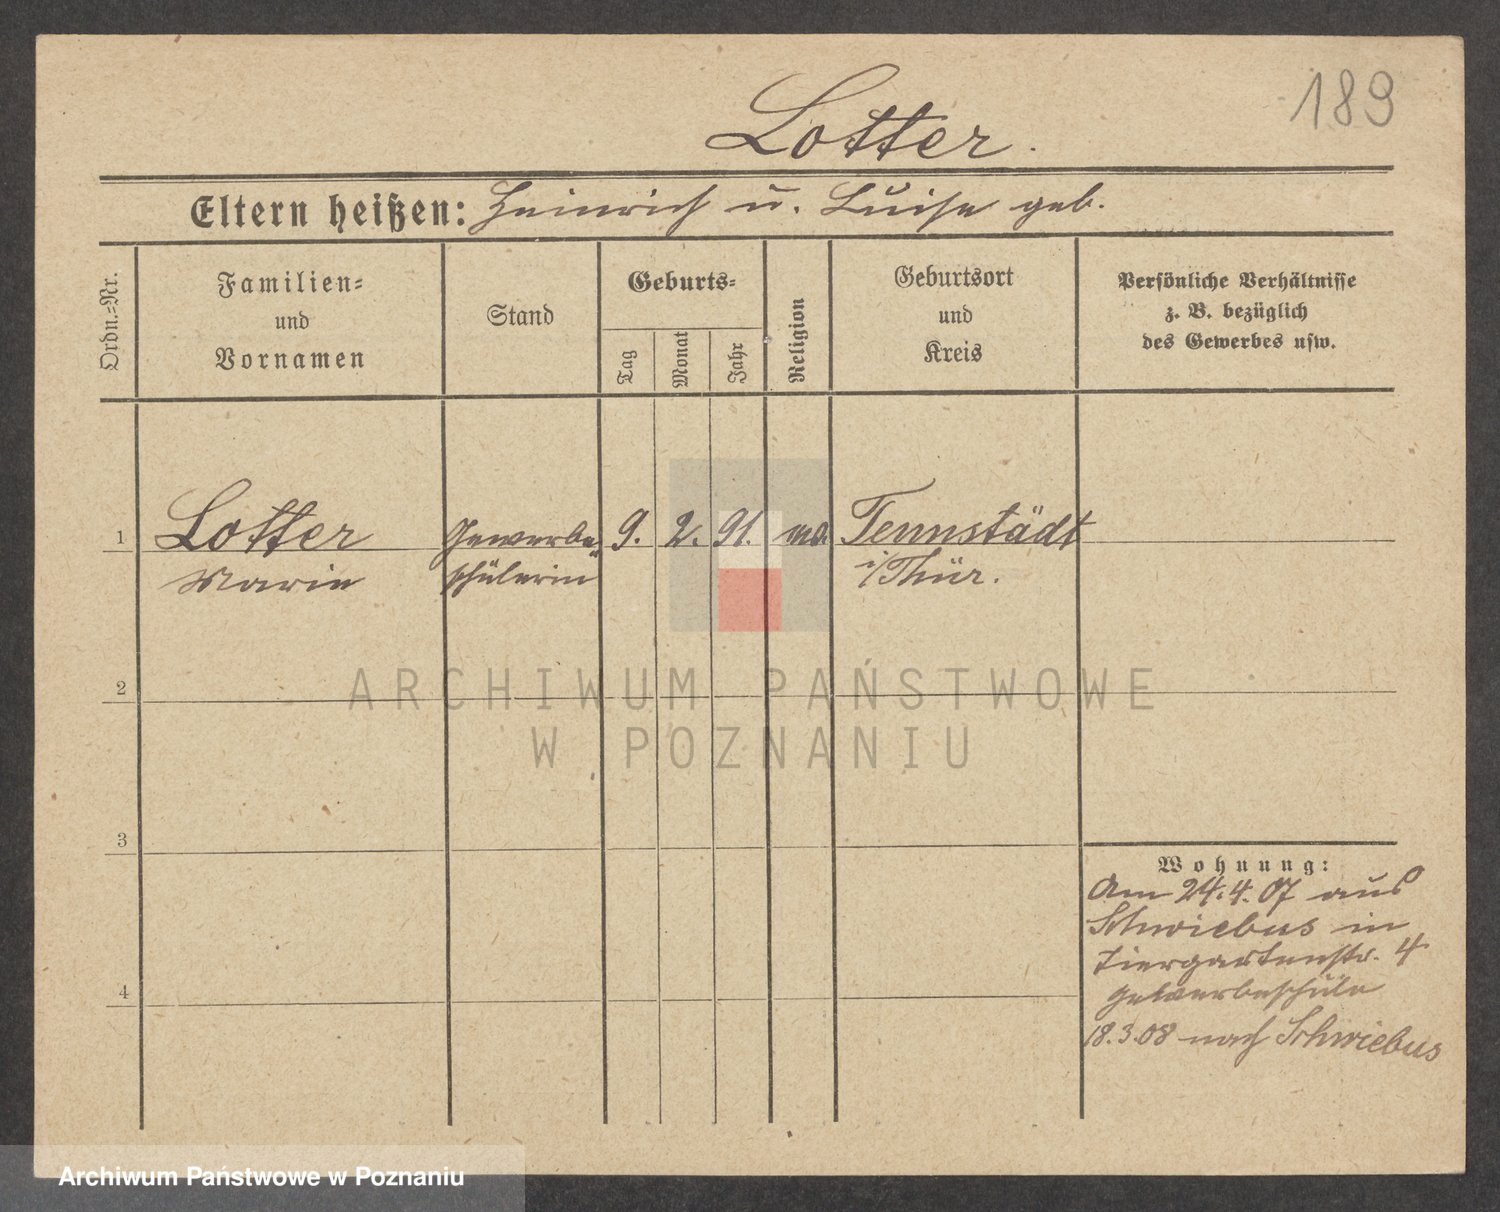 189
Lotter.
Eltern heißen: Heinrich u. Luise geb.
Ordn.-Nr.
Familien-
und
Vornamen
Stand
Geburts-
Tag
Monat
Jahr
Religion
Geburtsort
und
Kreis
Persönliche Verhältnisse
z. B. bezüglich
des Gewerbes usw.
1 Lotter Gewerbe 9. 2. 91. Tennstädt
Marie schülerin i/Thür.
ARCHIWUM PAŃSTWOWE
2
W POZNANIU
3
Wohnung:
Am 24.4.07 aus
Schwiebus in
Tiergartenstr. 4
4
Gewerbeschule
18.3.08 nach Schwiebus
Archiwum Państwowe w Poznaniu